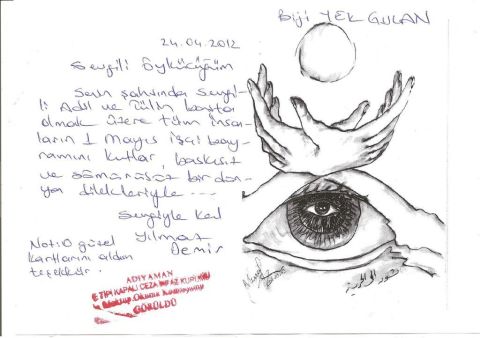 Biji YEK GULAN
24.04.2012
Sevgili Öykücüğüm
Senin şahsında Sevgi-
li Adil ve Tülin başta
olmak üzere tüm insan-
ların 1 Mayıs işçi bay-
ramını kutlar, baskısız
ve sömürüsüz bir dün-
ya dilekleriyle ---
Sevgiyle kal
Yılmaz
Demir
Not: O güzel
kartlarını aldım
teşekkür.
ADIYAMAN
E TİPİ KAPALI CEZA İNFAZ KURUMU
Mektup Okuma Komisyonu
GÖRÜLDÜ